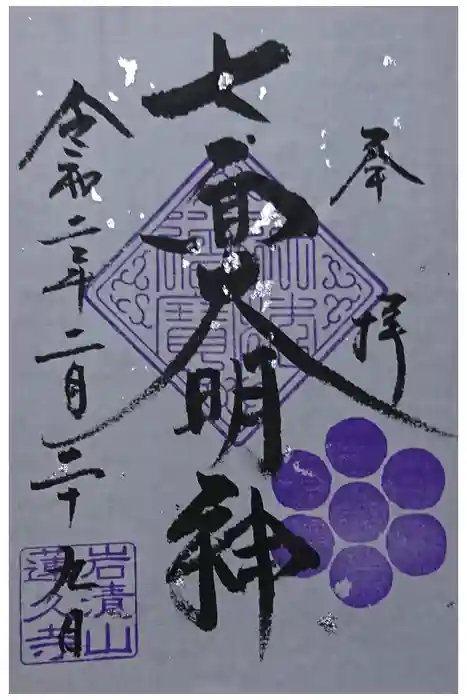 奉拝
七面大明神
令和二年二月二十九日
岩清山
蓮久寺